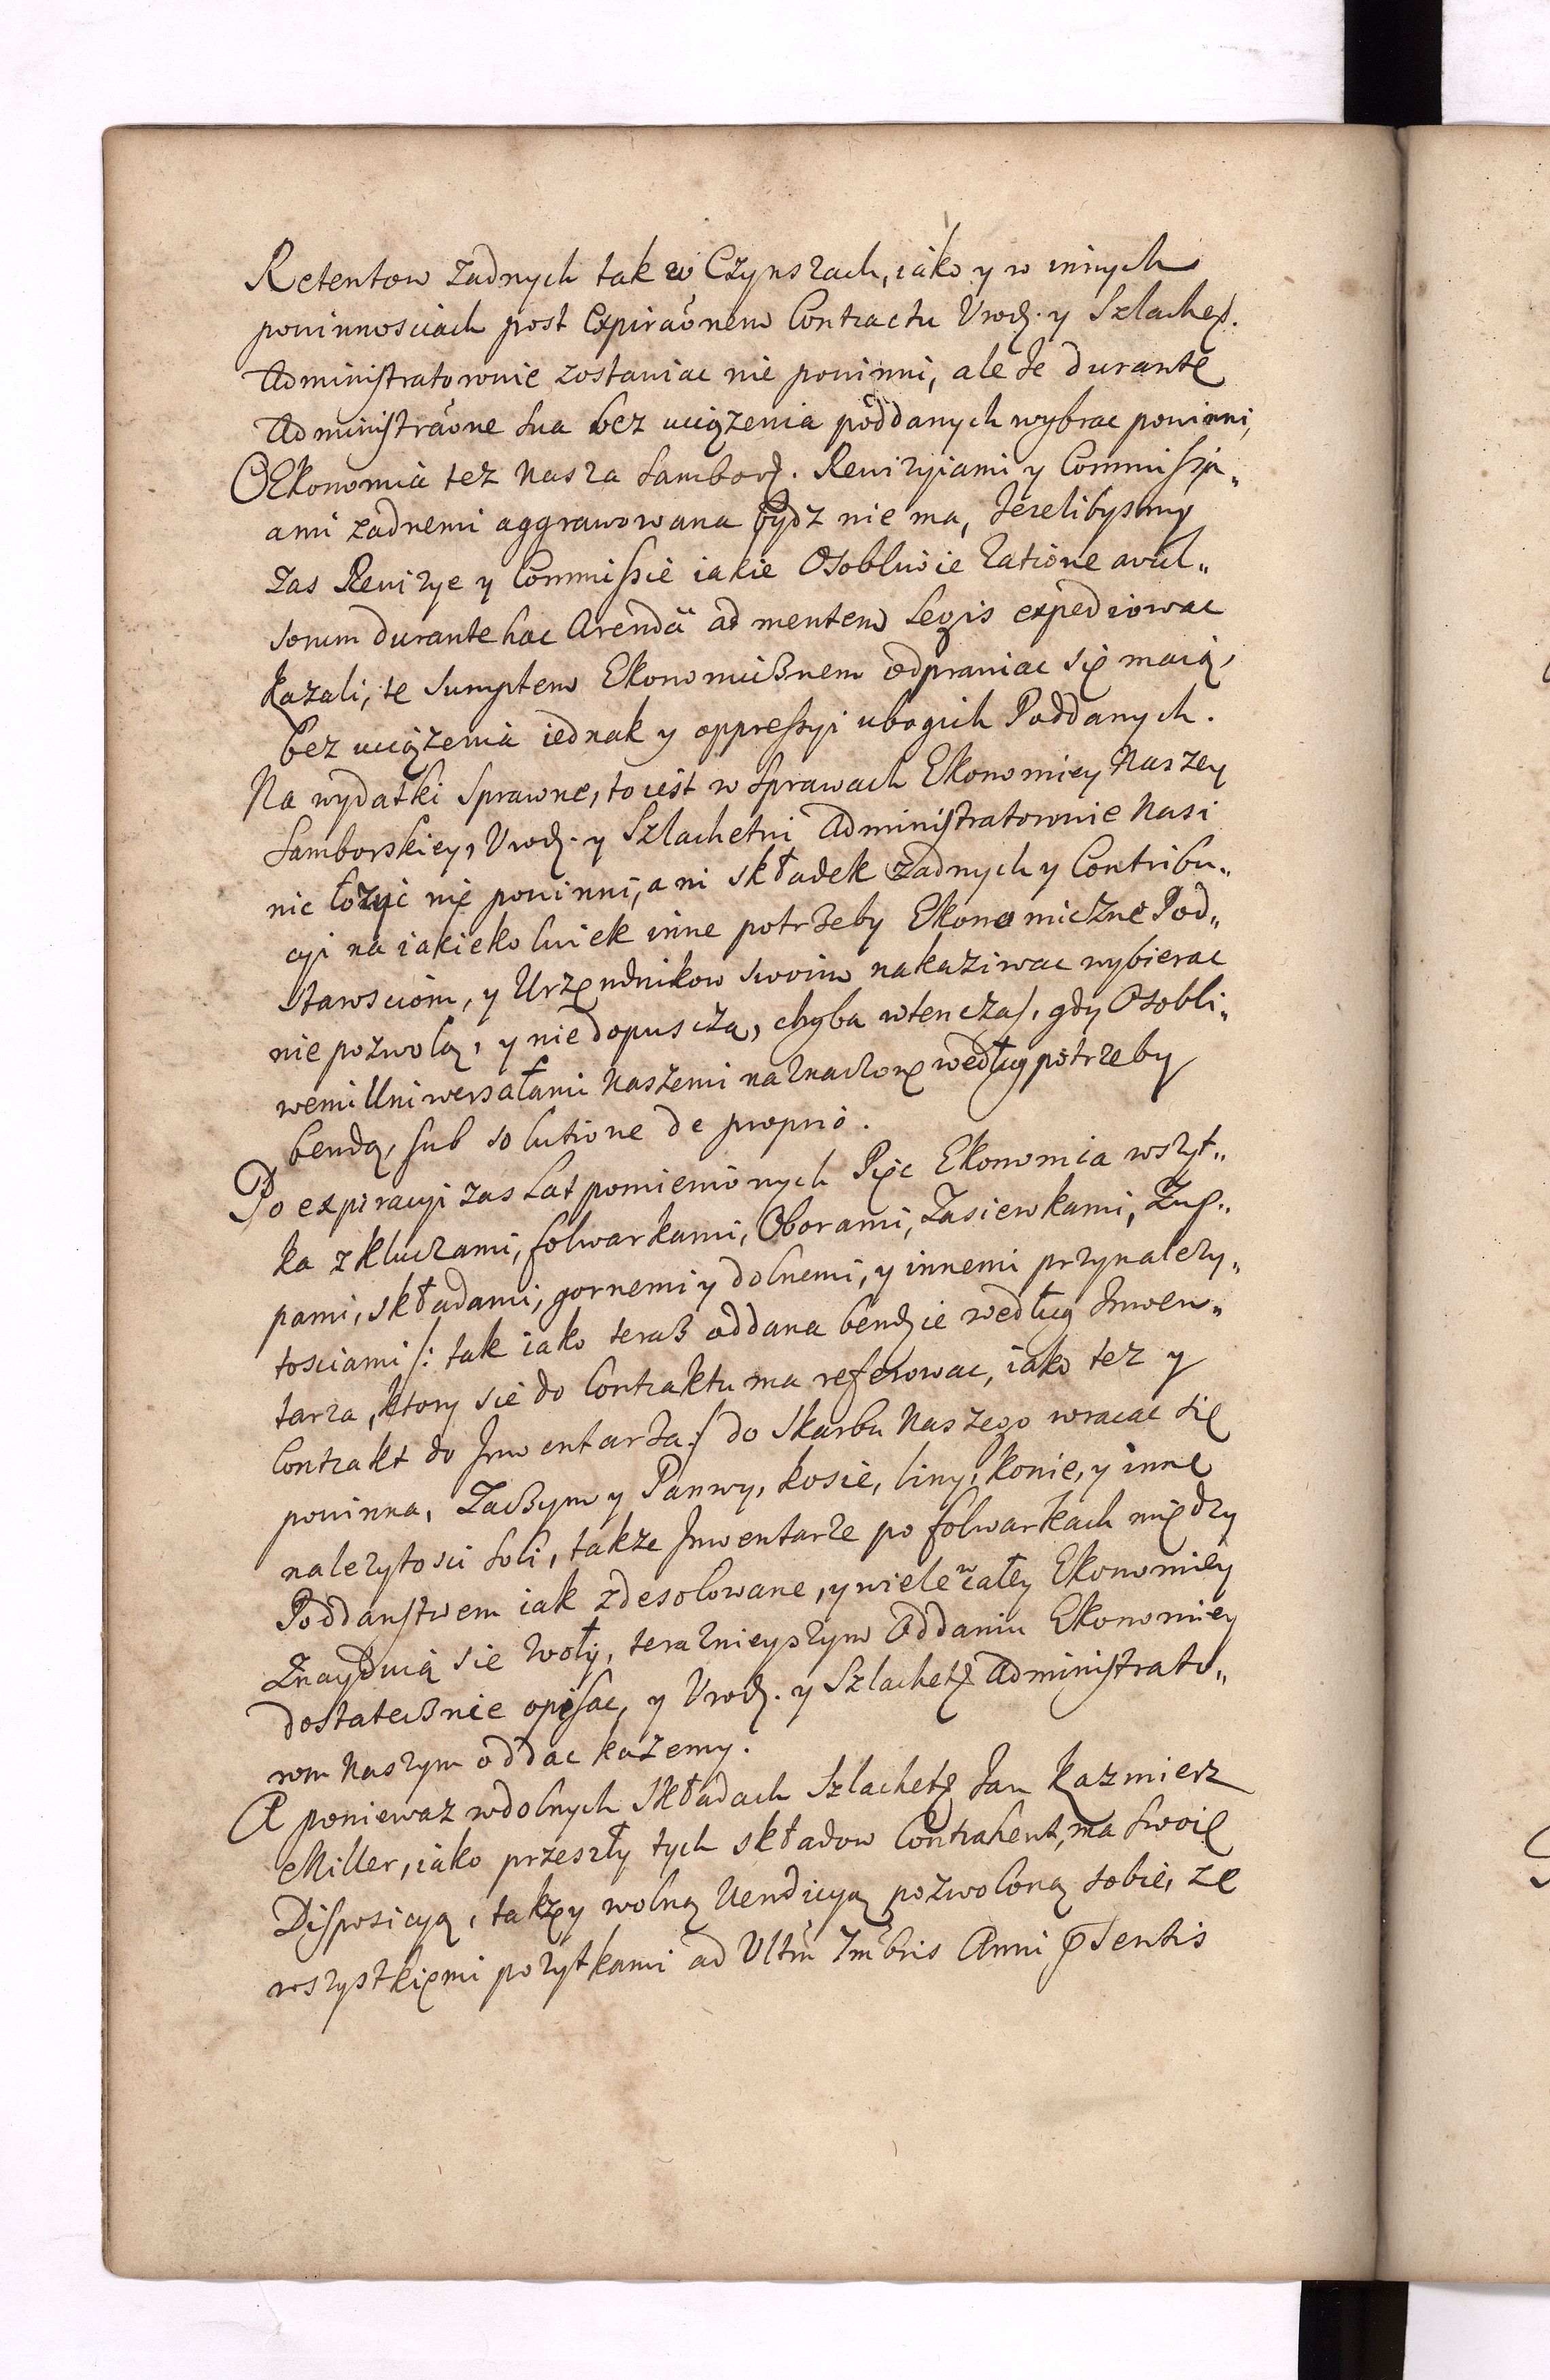 Retentow zadnych tak w Czynszach, iako y w innych
powinnosciach post Expiraõnem Contractu Urodz. y Szlachet.
Administratorowie zostawiac nie powinni, ale Je durante
Administraõne sua bez uciązenia poddanych wybrac powinni,
OEkonomia tez Nasza Samborz. Rewizyiami y Commissyi„
ami zadnemi aggrawowana bydz nie ma, Jezelibysmy
Zas Rewizye y Commissie iakie Osobliwie ratione avul„
sorum durante hac Arenda ad mentem Legis expediowac
kazali, te Sumptem Ekonomicßnem odprawiac się maią,
bez uciązenia iednak y oppressyi ubogich Poddanych.
Na wydatki Sprawne, to iest w Sprawach Ekonomiey Naszey
Samborskiey, Urodz. y Szlachetni Administratorowie Nasi
nic łozyc nie powinni, ani składek zadnych y Contribu„
cyi na iakiekolwiek inne potrzeby Ekonomiczne Pod„
starosciom, y Urzendnikow swoim nakaziwac wybierac
nie pozwolą, y nie dopuszczą, chyba wtenczas, gdy Osobli„
wemi Uniwersałami Naszemi naznaczone według potrzeby
bendą, sub solutione de proprio.
Po expiracyi zas Lat pomienionych Pięc Ekonomia wszyt„
ka z kluczami, folwarkami, Oborami, Zasiewkami, Zup„
pami, składami, gornemi y dolnemi, y innemi przynalezy„
tosciami /: tak iako teraß oddana bendzie według Inwen„
tarza, ktory sie do Contraktu ma referowac, iako tez y
Contrakt do Inwentarza :/ do Skarbu Naszego wracac się
powinna, Zacßym y Panwy, kosie, liny, konie, y inne
nalezytosci Soli, takze Inwentarze po folwarkach między
Poddanstwem iak zdesolowane, y wiele w całey Ekonomiey
Znayduią sie woły, teraznieyszym Oddaniu Ekonomiey
dostatecßnie opisac, y Urodz. y Szlachet. Administrato„
rom Naszym oddac kazemy.
A poniewaz w dolnych Składach Szlachet. Jan Kazmierz
Miller, iako przeszły tych składow Contrahent, ma swoię
Disposicyą, takze y wolną Vendicyą pozwoloną sobie, ze
wszystkiemi pozytkami ad Ultm̃ 7mbris Anni pr̃sentis